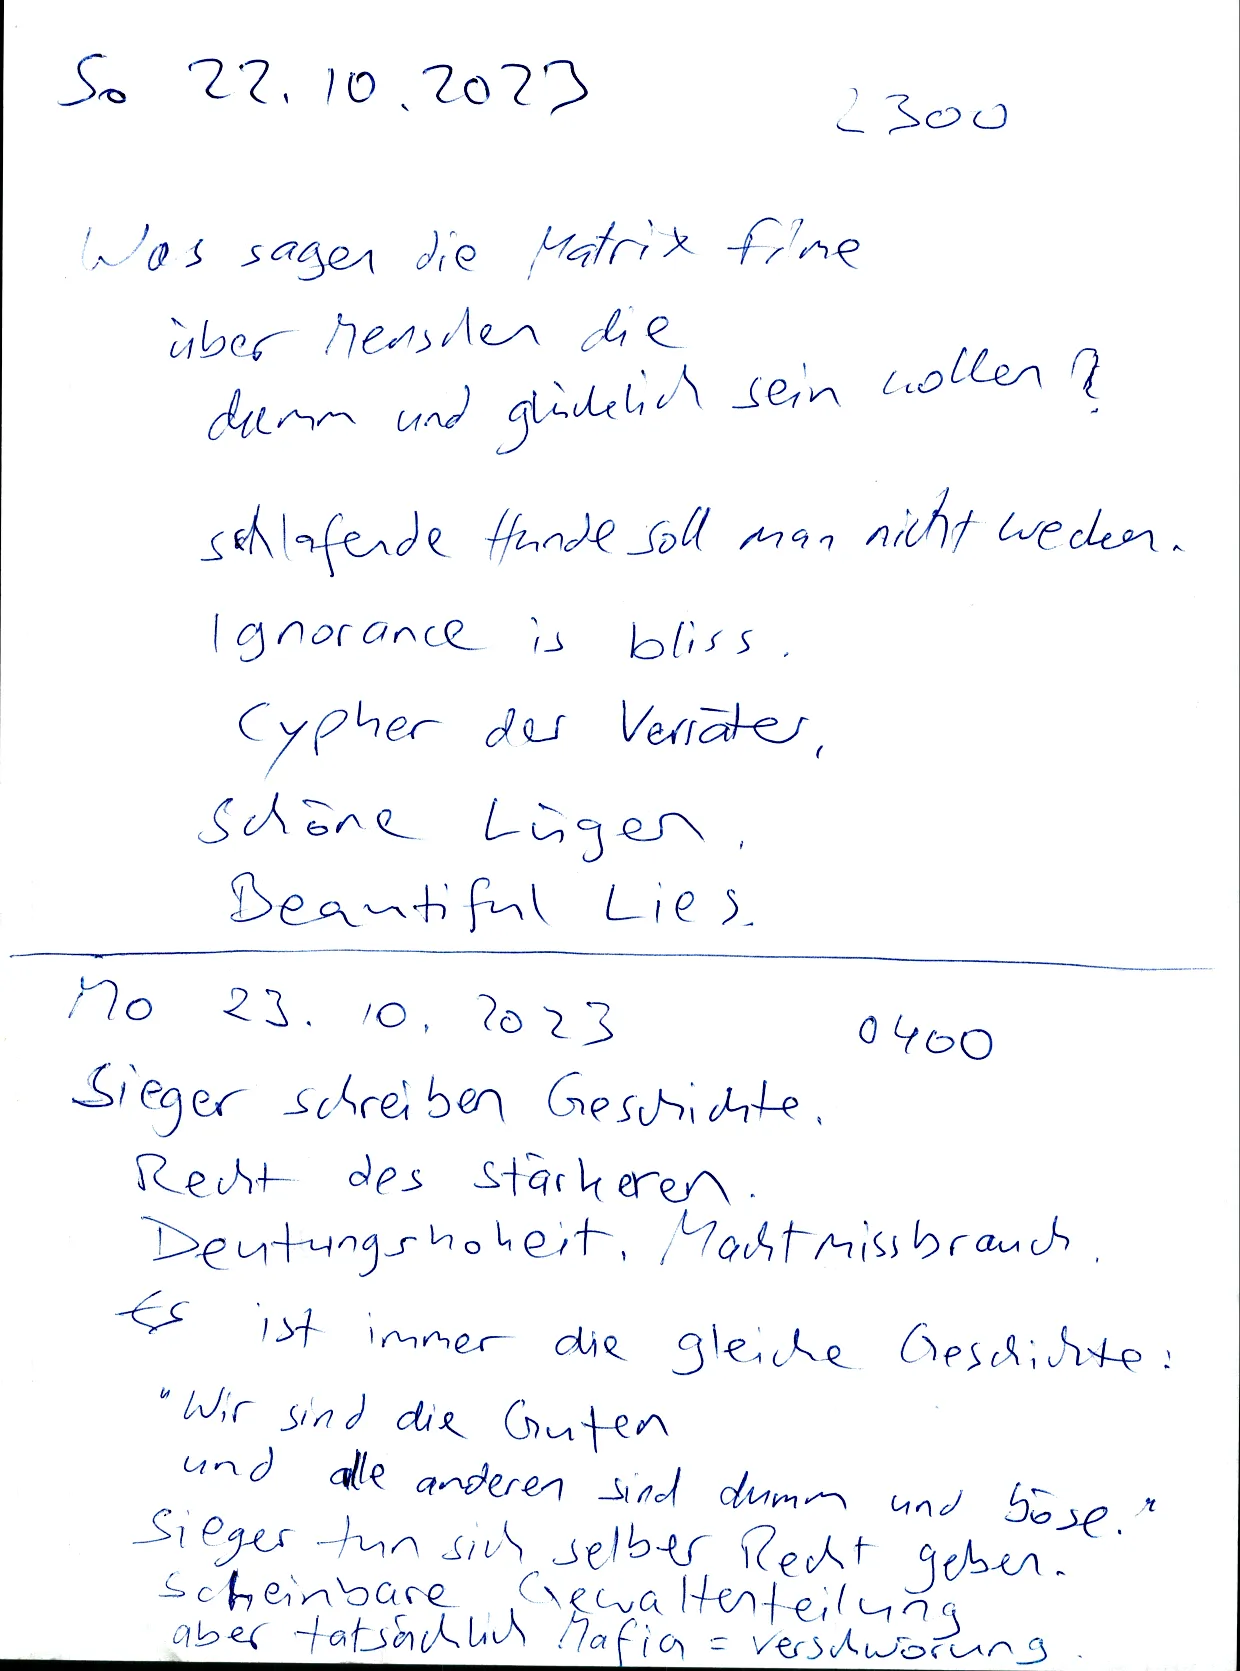 So 22.10.2023
2300
Was sagen die Matrix filme
über Menschen die
dumm und glücklich sein wollen?
schlafende Hunde soll man nicht wecken.
Ignorance is bliss.
Cypher der Verräter.
Schöne Lügen.
Beautiful Lies.
Mo 23.10.2023
0400
Sieger schreiben Geschichte.
Recht des stärkeren.
Deutungshoheit. Machtmissbrauch.
Es ist immer die gleiche Geschichte:
"Wir sind die Guten
und alle anderen sind dumm und böse."
Sieger tun sich selber Recht geben.
Scheinbare Gewaltenteilung
aber tatsächlich Mafia = Verschwörung.